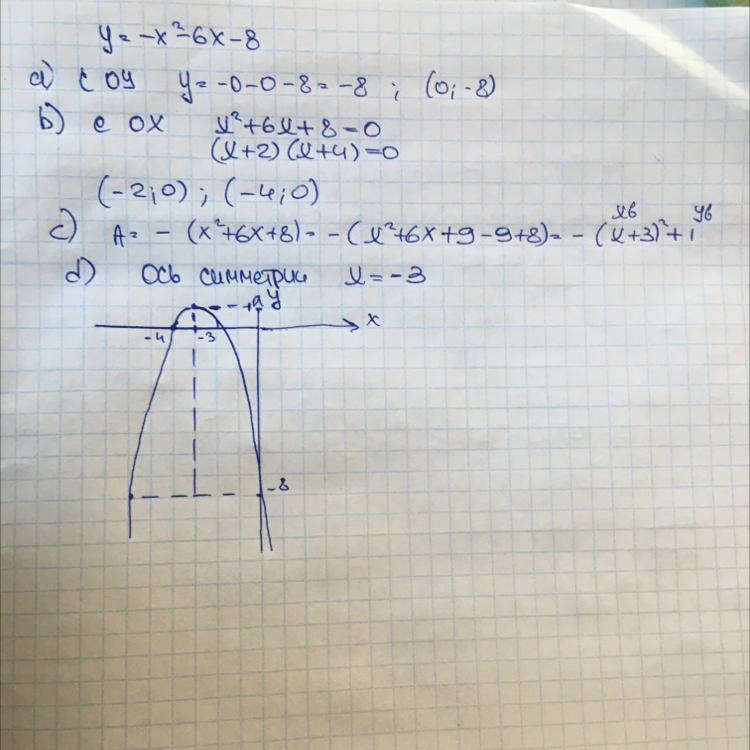 y = -x²-6x-8
a) с OY y = -0-0-8 = -8 ; (0;-8)
b) с OX x²+6x+8=0
(x+2)(x+4)=0
(-2;0) ; (-4;0)
xв yв
c) A = -(x²+6x+8) = -(x²+6x+9-9+8) = -(x+3)²+1
d) Ось симметрии x = -3
y
x
-4 -3
-8